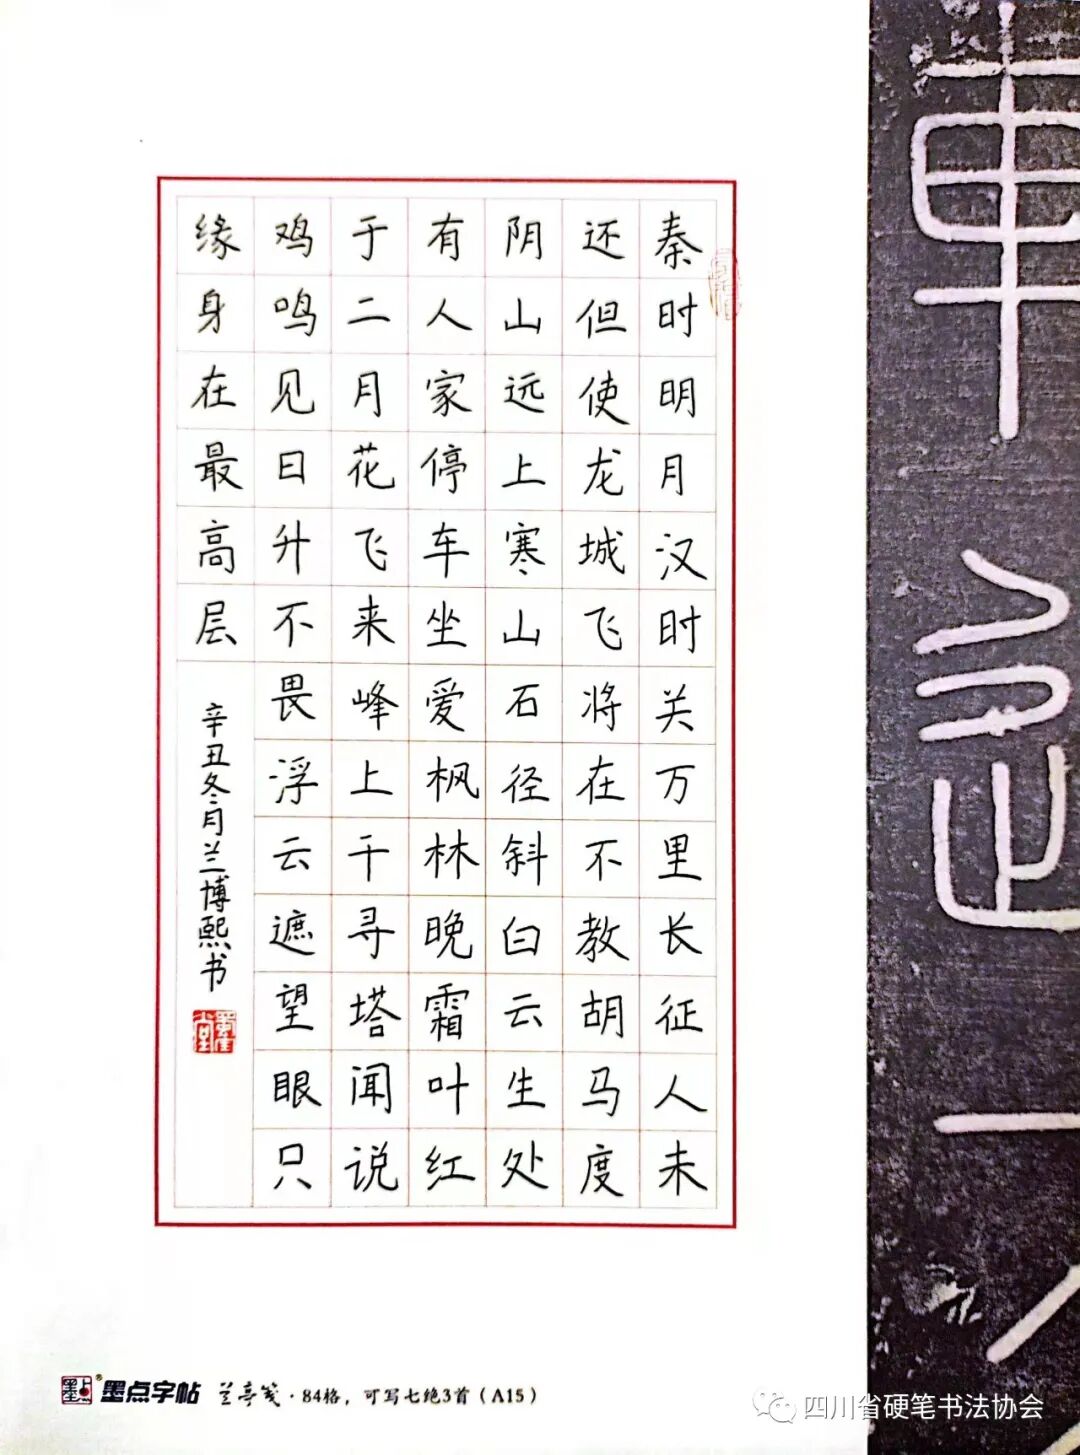 秦时明月汉时关万里长征人未
还但使龙城飞将在不教胡马度
阴山远上寒山石径斜白云生处
有人家停车坐爱枫林晚霜叶红
于二月花飞来峰上千寻塔闻说
鸡鸣见日升不畏浮云遮望眼只
缘身在最高层
辛丑冬月兰博熙书
墨点字帖 兰亭笺·84格，可写七绝3首（A15）
四川省硬笔书法协会